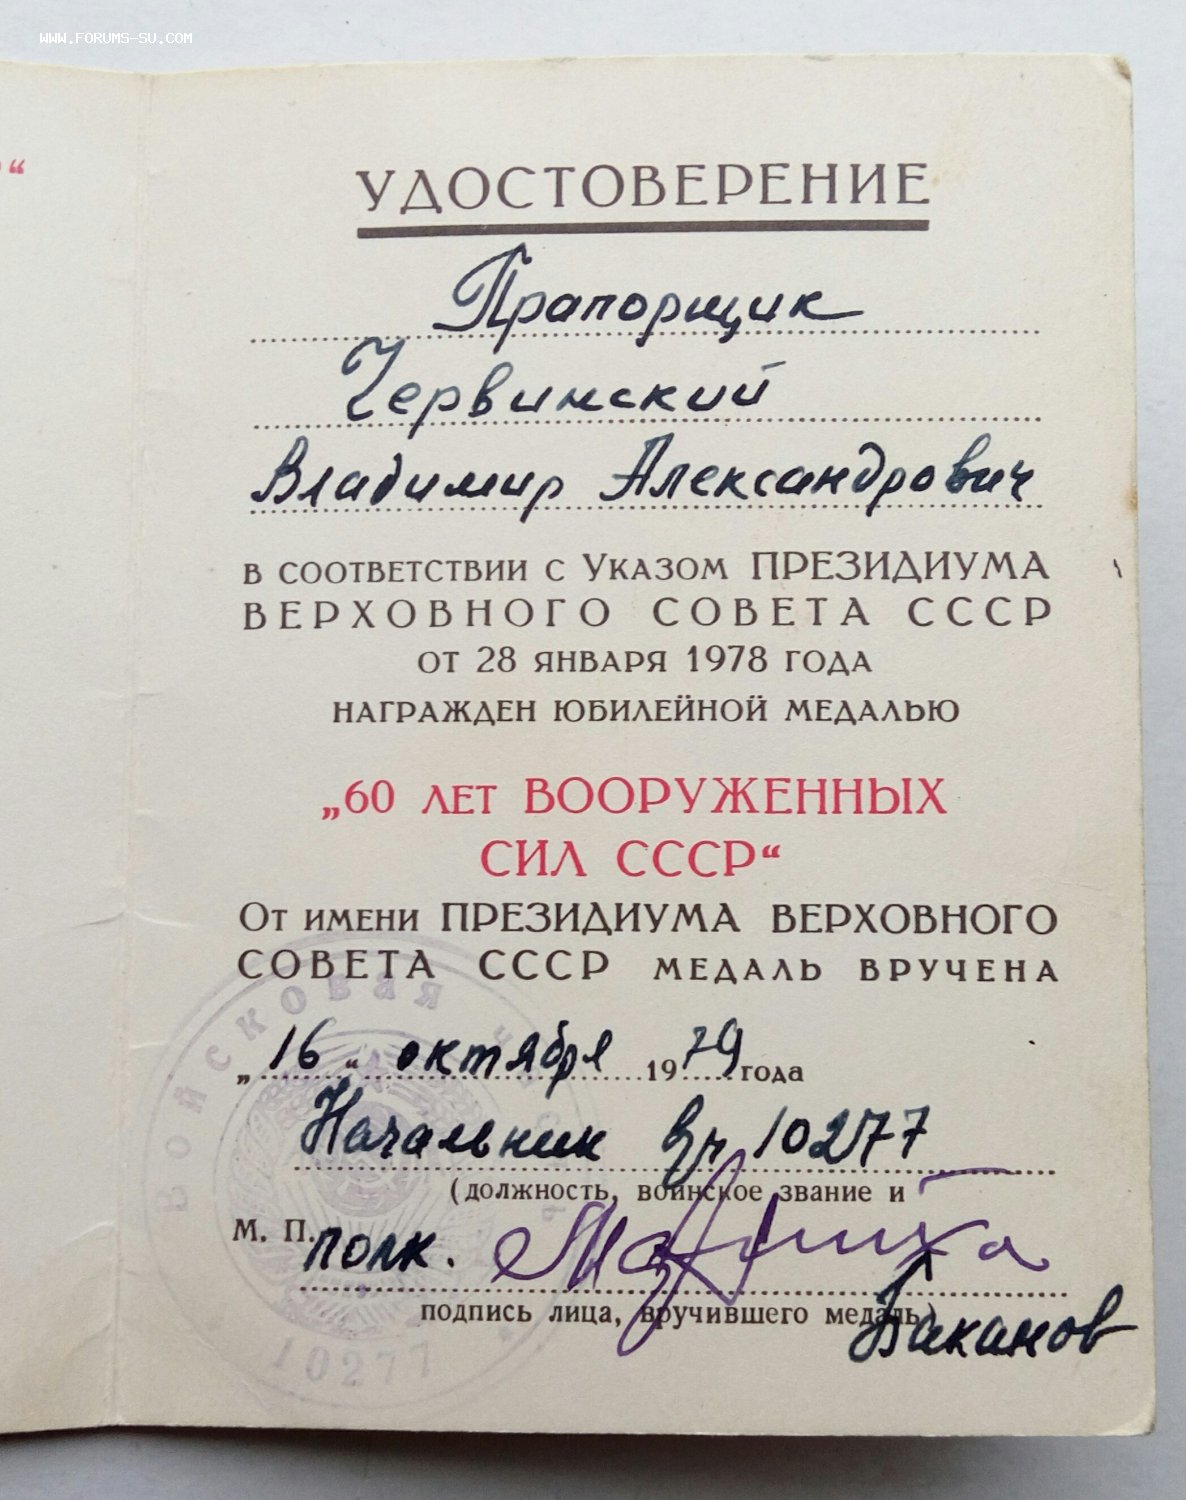 WWW.FORUMS-SU.COM
“
УДОСТОВЕРЕНИЕ
Прапорщик
Червинский
Владимир Александрович
в соответствии с Указом ПРЕЗИДИУМА
ВЕРХОВНОГО СОВЕТА СССР
от 28 января 1978 года
награжден юбилейной медалью
„60 лет ВООРУЖЕННЫХ
СИЛ СССР“
От имени ПРЕЗИДИУМА ВЕРХОВНОГО
СОВЕТА СССР медаль вручена
„16“ октября 1979 года
Начальник в/ч 10277
(должность, воинское звание и
М. П. полк.
подпись лица, вручившего медаль)
Баканов
ВОЙСКОВАЯ ЧАСТЬ
10277